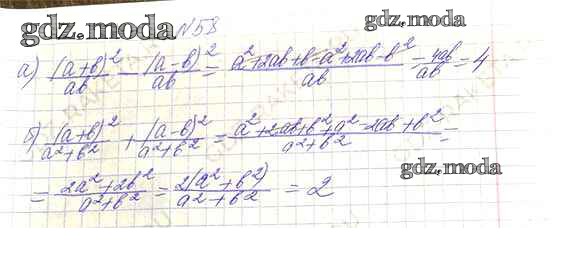 gdz.moda №58 gdz.moda
а) (a+b)²/ab − (a−b)²/ab = a²+2ab+b−a²+2ab−b²/ab = 4ab/ab = 4
б) (a+b)²/a²+b² + (a−b)²/a²+b² = a²+2ab+b²+a²−2ab+b²/a²+b² =
gdz.moda
= 2a²+2b²/a²+b² = 2(a²+b²)/a²+b² = 2